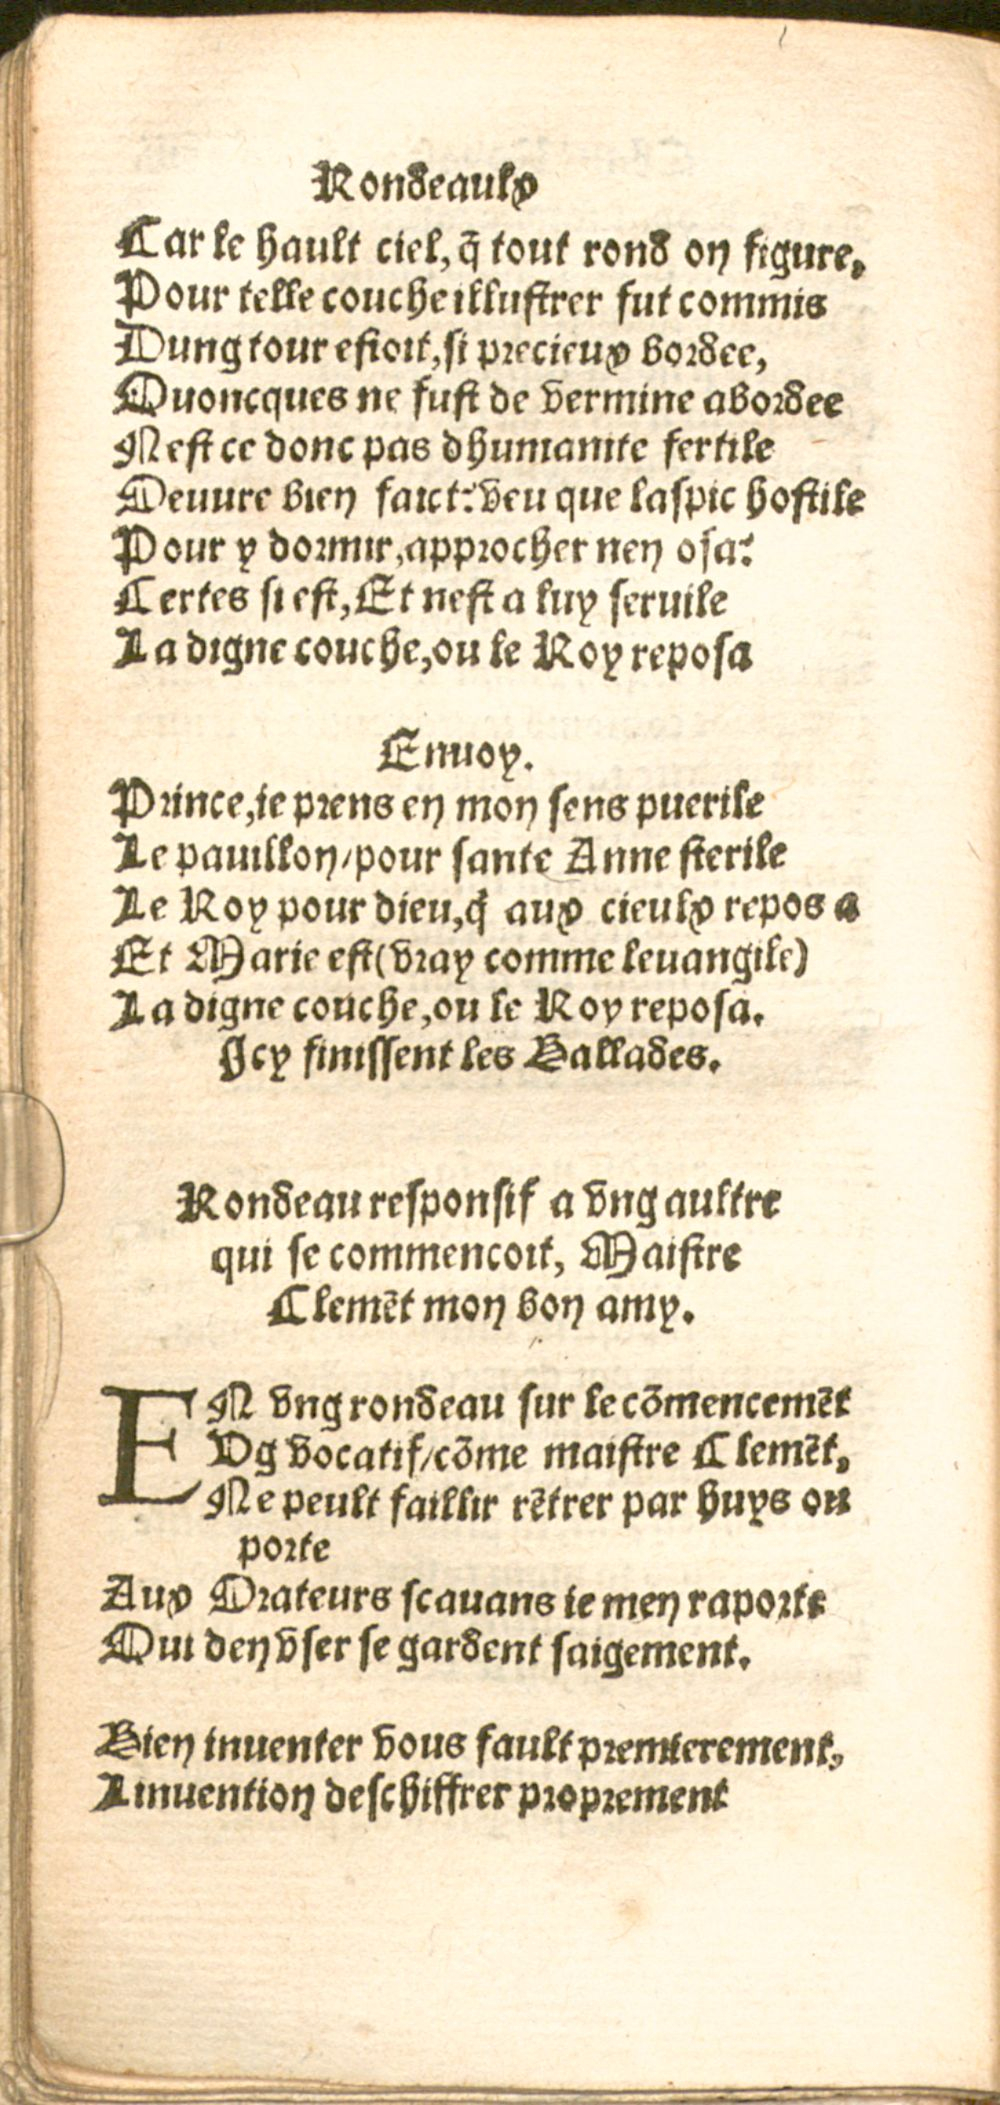 Rondeaulx
Car le hault ciel, q̃ tout rond on figure,
Pour telle couche illustrer fut commis
Dung tour estoit, si precieux bordee,
Quoncques ne fust de vermine abordee
Nest ce donc pas dhumanite fertile
Oeuure bien faict: veu que laspic hostile
Pour y dormir, approcher nen osa:
Certes si est, Et nest a luy seruile
La digne couche, ou le Roy reposa
Enuoy.
Prince, ie prens en mon sens puerile
Le pauillon/pour sante Anne sterile
Le Roy pour dieu, q̃ aux cieulx repos a
Et Marie est (vray comme leuangile)
La digne couche, ou le Roy reposa.
Icy finissent les Ballades.
Rondeau responsif a vng aultre
qui se commencoit, Maistre
Clemẽt mon bon amy.
EN vng rondeau sur le cõmencemẽt
Vg vocatif/cõme maistre Clemẽt,
Ne peult faillir rẽtrer par huys ou
porte
Aux Orateurs scauans ie men raporte
Qui den vser se gardent saigement.
Bien inuenter vous fault premierement,
Linuention deschiffrer proprement